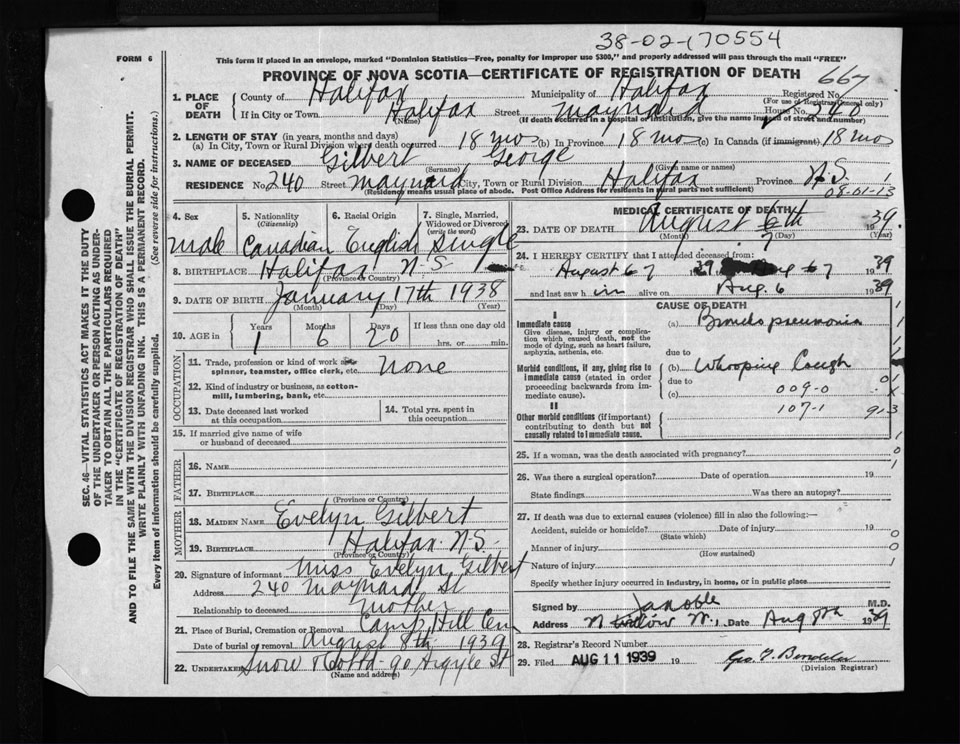 38-02-170554
FORM 6
This form if placed in an envelope, marked "Dominion Statistics—Free, penalty for improper use $300," and properly addressed will pass through the mail "FREE"
PROVINCE OF NOVA SCOTIA—CERTIFICATE OF REGISTRATION OF DEATH 667
1. PLACE OF DEATH County of Halifax Municipality of Halifax Registered No.
(For use of Registrar General only)
If in City or Town Halifax Street Maynard House No. 240
(Name) (If death occurred in a hospital or institution, give the name instead of street and number)
2. LENGTH OF STAY (in years, months and days)
(a) In City, Town or Rural Division where death occurred 18 mos (b) In Province 18 mos (c) In Canada (if immigrant) 18 mos
3. NAME OF DECEASED Gilbert George
(Surname) (Given name or names)
RESIDENCE No. 240 Street Maynard City, Town or Rural Division Halifax Province N.S.
(Residency means usual place of abode. Post Office Address for residents in rural parts not sufficient)
08-01-13
4. Sex male
5. Nationality (Citizenship) Canadian
6. Racial Origin English
7. Single, Married, Widowed or Divorced (write the word) Single
8. BIRTHPLACE Halifax N S
(Province or Country)
9. DATE OF BIRTH January 17th 1938
(Month) (Day) (Year)
10. AGE in Years 1 Months 6 Days 20 If less than one day old
hrs. or min.
OCCUPATION
11. Trade, profession or kind of work as spinner, teamster, office clerk, etc. None
12. Kind of industry or business, as cotton-mill, lumbering, bank, etc.
13. Date deceased last worked at this occupation
14. Total yrs. spent in this occupation
15. If married give name of wife or husband of deceased
FATHER
16. NAME
17. BIRTHPLACE
(Province or Country)
MOTHER
18. MAIDEN NAME Evelyn Gilbert
19. BIRTHPLACE Halifax N.S.
(Province or Country)
20. Signature of informant Miss Evelyn Gilbert
Address 240 Maynard St
Relationship to deceased mother
21. Place of Burial, Cremation or Removal Camp Hill Cem
Date of burial or removal August 8th 1939
22. UNDERTAKER Snow & Co Ltd 90 Argyle St
(Name and address)
MEDICAL CERTIFICATE OF DEATH
23. DATE OF DEATH August 6th 7 1939.
(Month) (Day) (Year)
24. I HEREBY CERTIFY that I attended deceased from:
August 6 7 1939 Aug 6 7 1939
and last saw him alive on Aug. 6 1939
CAUSE OF DEATH
I
Immediate cause
Give disease, injury or complication which caused death, not the mode of dying, such as heart failure, asphyxia, asthenia, etc.
(a) Broncho pneumonia
due to
Morbid conditions, if any, giving rise to immediate cause (stated in order proceeding backwards from immediate cause).
(b) Whooping Cough
due to
(c) 009-0
107-1
II
Other morbid conditions (if important) contributing to death but not causally related to immediate cause.
25. If a woman, was the death associated with pregnancy?
26. Was there a surgical operation? Date of operation 19
State findings Was there an autopsy?
27. If death was due to external causes (violence) fill in also the following:—
Accident, suicide or homicide? Date of injury 19
(State which)
Manner of injury
(How sustained)
Nature of injury
Specify whether injury occurred in industry, in home, or in public place
Signed by M.D.
Address Date Aug 8th 1939
28. Registrar's Record Number
29. Filed AUG 11 1939 19
(Division Registrar)
SEC. 46—VITAL STATISTICS ACT MAKES IT THE DUTY
OF THE UNDERTAKER OR PERSON ACTING AS UNDERTAKER
TO OBTAIN ALL THE PARTICULARS REQUIRED
IN THE "CERTIFICATE OF REGISTRATION OF DEATH"
AND TO FILE THE SAME WITH THE DIVISION REGISTRAR WHO SHALL ISSUE THE BURIAL PERMIT.
WRITE PLAINLY WITH UNFADING INK. THIS IS A PERMANENT RECORD.
Every item of information should be carefully supplied. (See reverse side for instructions.)